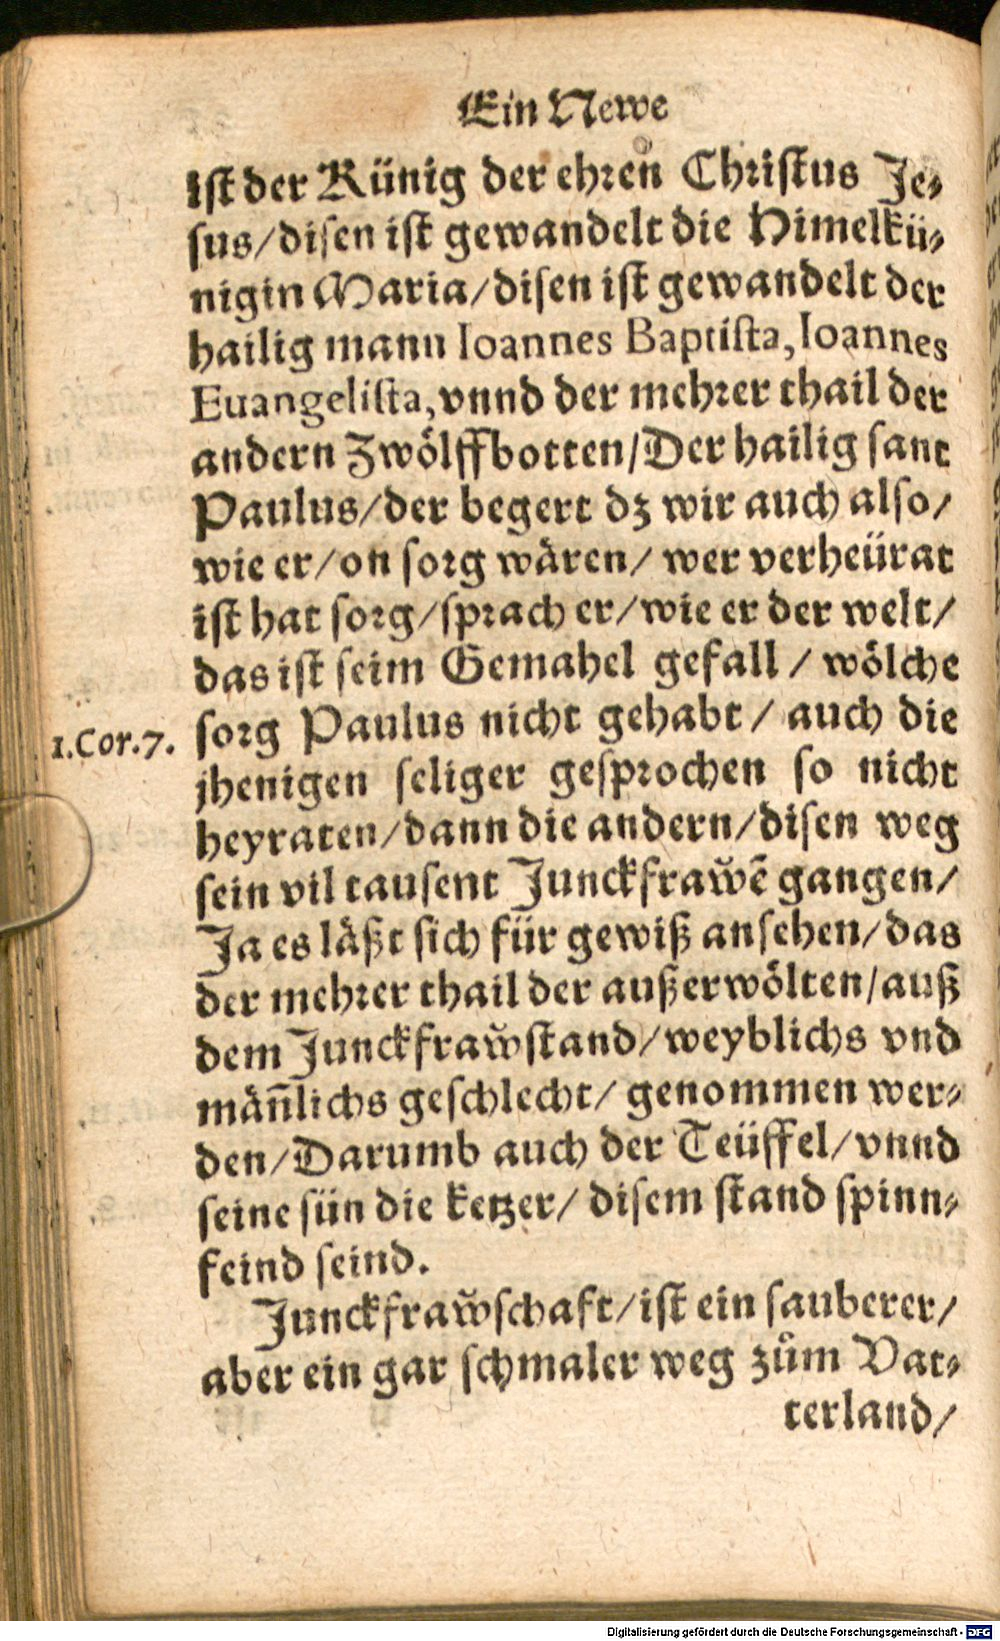 Ein Newe
ist der Künig der ehren Christus Je⸗
sus/disen ist gewandelt die Himelkü⸗
nigin Maria/disen ist gewandelt der
hailig mann Ioannes Baptista, Ioannes
Euangelista, vnnd der mehrer thail der
andern Zwölffbotten/Der hailig sant
Paulus/der begert dz wir auch also/
wie er/on sorg wären/ wer verheürat
ist hat sorg/sprach er/wie er der welt/
das ist seim Gemahel gefall / wölche
1.Cor.7. sorg Paulus nicht gehabt / auch die
jhenigen seliger gesprochen so nicht
heyraten/dann die andern/disen weg
sein vil tausent Junckfraw̆ē gangen/
Ja es läßt sich für gewiß ansehen/das
der mehrer thail der außerwölten/auß
dem Junckfraw̆stand/weyblichs vnd
män̄lichs geschlecht/ genommen wer⸗
den/Darumb auch der Teüffel/vnnd
seine sün die ketzer/ disem stand spinn⸗
feind seind.
Junckfraw̆schaft/ist ein sauberer/
aber ein gar schmaler weg zům Vat⸗
terland/
Digitalisierung gefördert durch die Deutsche Forschungsgemeinschaft - DFG